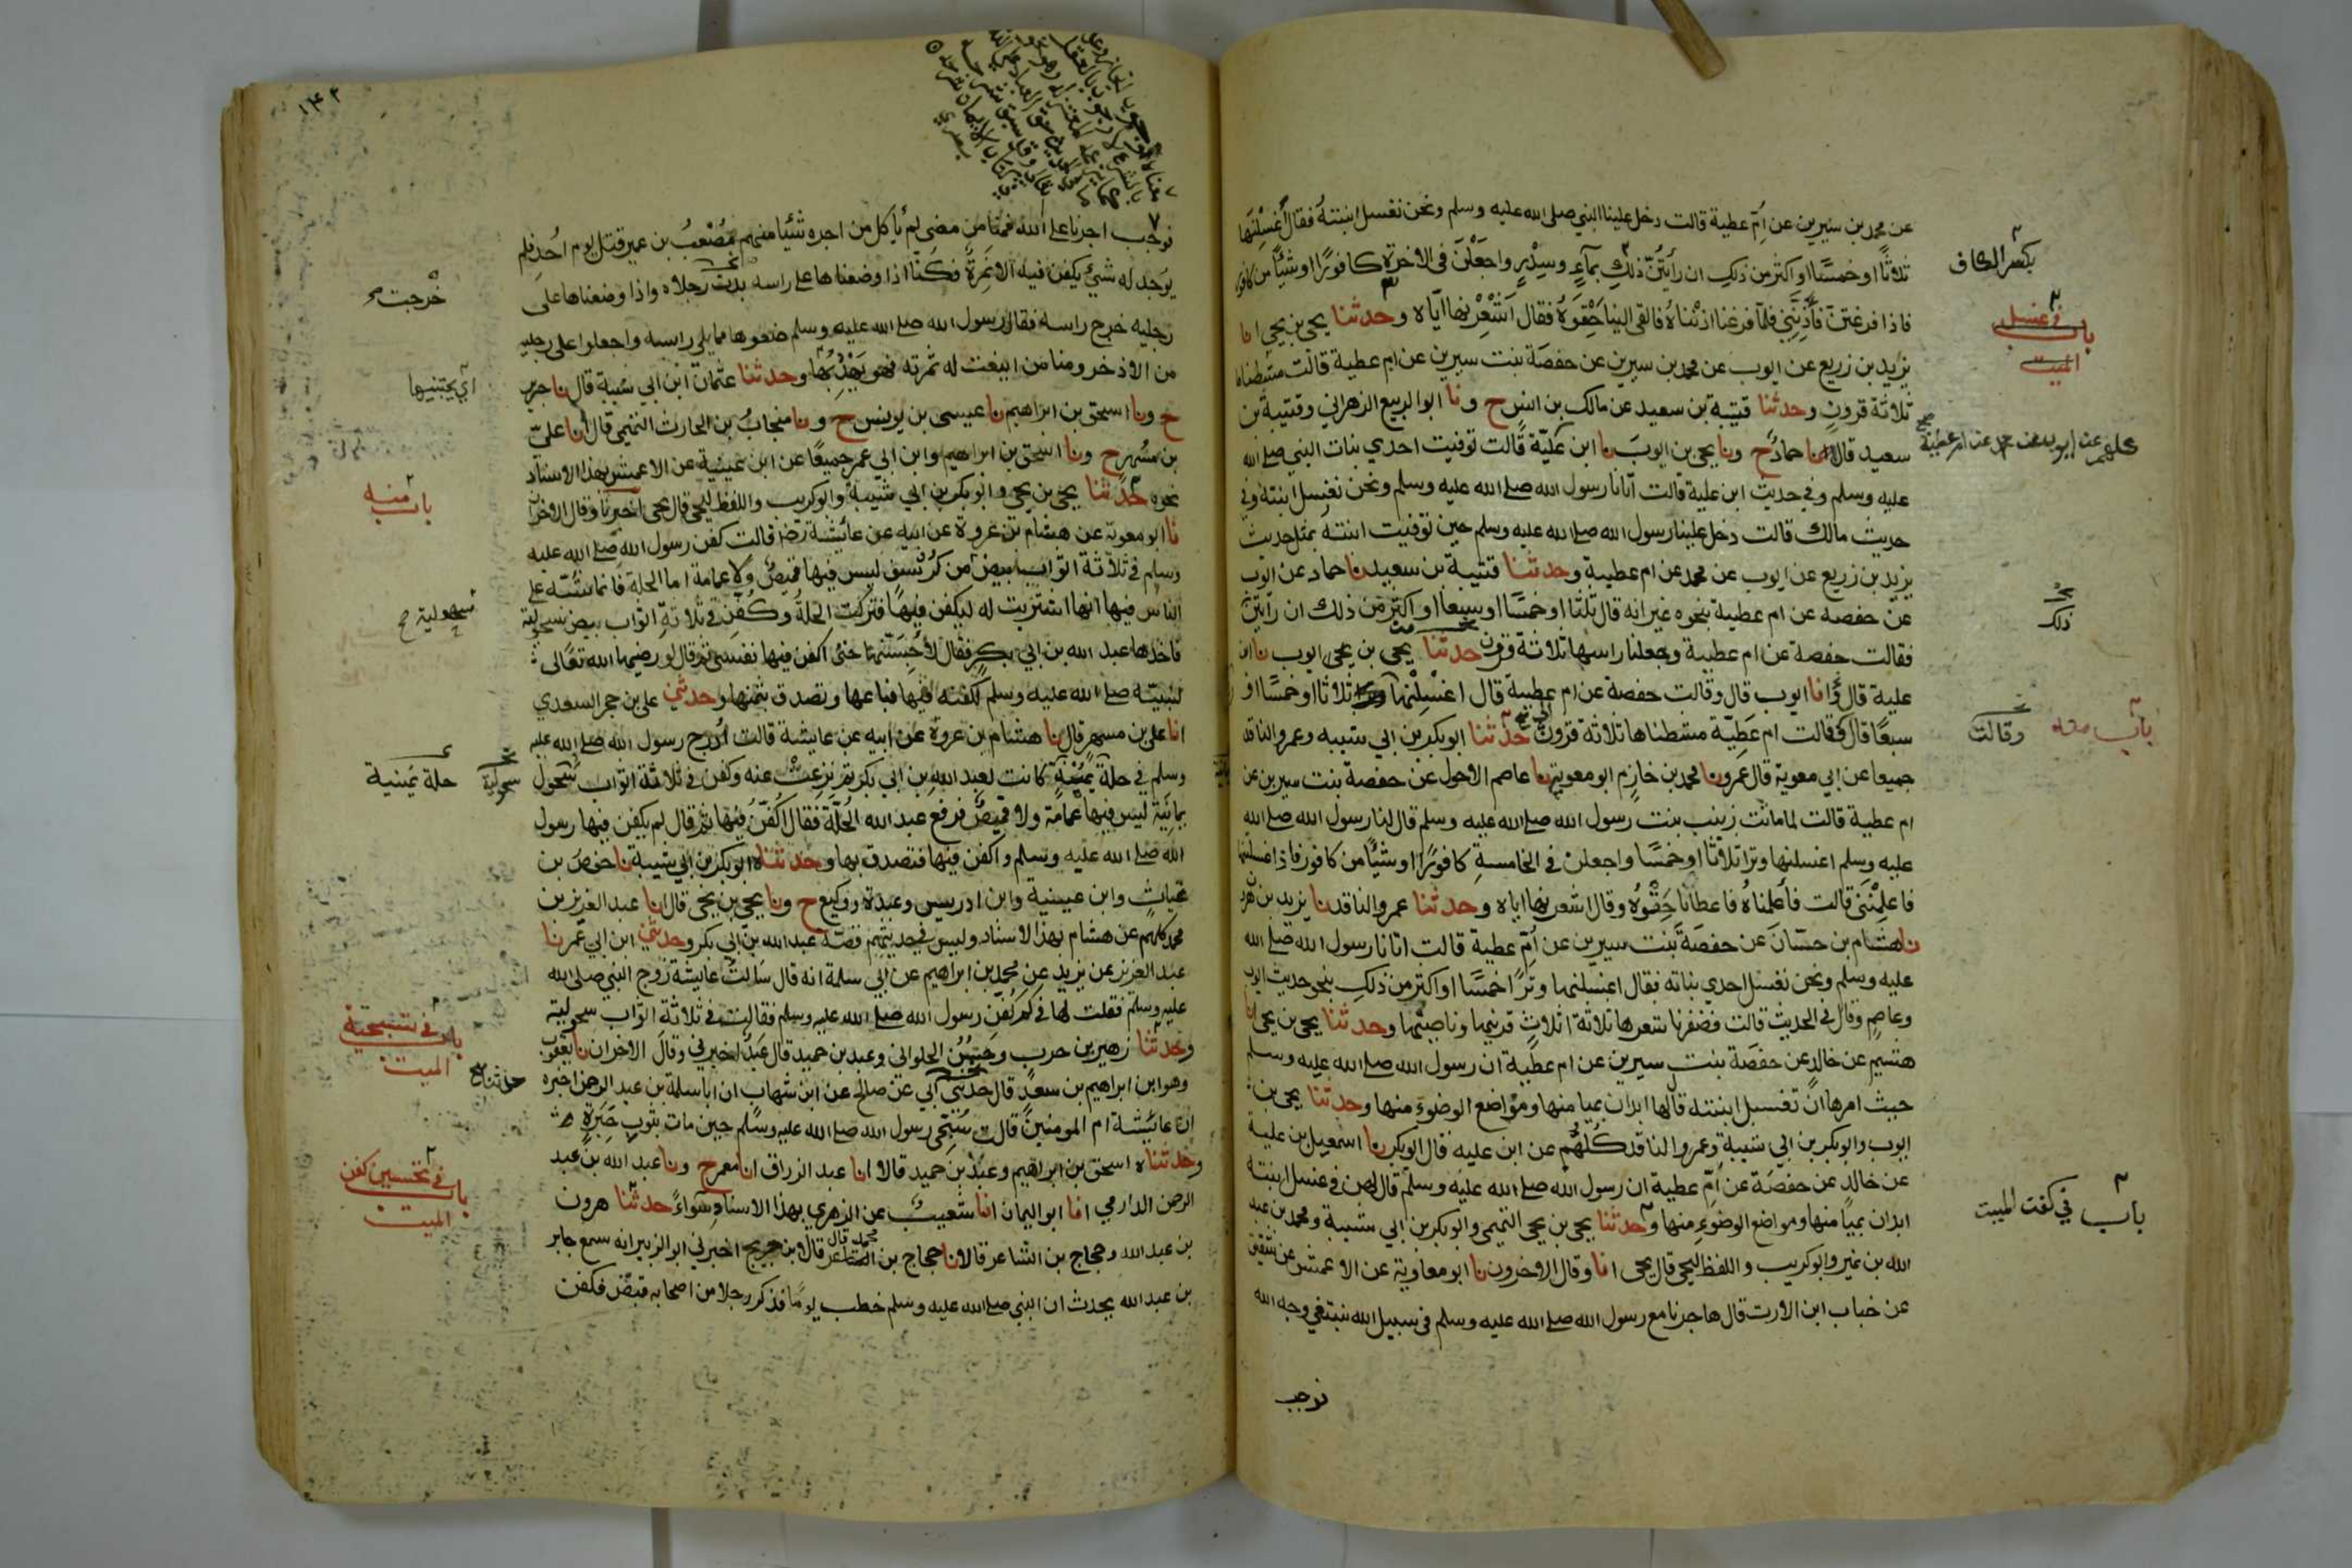 عن محمد بن سيرين عن ام عطية قالت دخل علينا النبي صلى الله عليه وسلم ونحن نغسل ابنته فقال اغسلنها
ثلاثا او خمسا او اكثر من ذلك ان رأيتن ذلك بماء وسدر واجعلن في الاخرة كافورا او شيئا من كافور
فاذا فرغتن فآذنني فلما فرغنا اذناه فالقى الينا حقوه فقال اشعرنها اياه وحدثنا يحيى بن يحيى انا
يزيد بن زريع عن ايوب عن محمد بن سيرين عن حفصة بنت سيرين عن ام عطية قالت مشطناها
ثلاثة قرون وحدثنا قتيبة بن سعيد عن مالك بن انس ح ونا ابو الربيع الزهراني وقتيبة بن
سعيد قالا نا حماد ح ونا يحيى بن ايوب نا ابن علية قالت توفيت احدي بنات النبي صلى الله
عليه وسلم وفي حديث ابن علية قالت اتانا رسول الله صلى الله عليه وسلم ونحن نغسل ابنته وفي
حديث مالك قالت دخل علينا رسول الله صلى الله عليه وسلم حين توفيت ابنته بمثل حديث
يزيد بن زريع عن ايوب عن محمد عن ام عطية وحدثنا قتيبة بن سعيد نا حماد عن ايوب
عن حفصة عن ام عطية بنحوه غير انه قال ثلثا او خمسا او سبعا او اكثر من ذلك ان رأيتن
فقالت حفصة عن ام عطية وجعلنا راسها ثلاثة قرون حدثنا يحيى بن يحيى ايوب نا ابن
علية قال وانا ايوب قال وقالت حفصة عن ام عطية قال اغسلنها وترا ثلاثا او خمسا او
سبعا قال وقالت ام عطية مشطناها ثلاثة قرون حدثنا ابو بكر بن ابي شيبه وعمرو الناقد
جميعا عن ابي معوية قال عمرو نا محمد بن خازم ابو معوية نا عاصم الاحول عن حفصة بنت سيرين عن
ام عطية قالت لما ماتت زينب بنت رسول الله صلى الله عليه وسلم قال لنا رسول الله صلى الله
عليه وسلم اغسلنها وترا ثلاثا او خمسا واجعلن في الخامسة كافورا او شيئا من كافور فاذا غسلتنها
فاعلمنني قالت فأعلمناه فاعطانا حقوه وقال اشعرنها اياه وحدثنا عمرو الناقد نا يزيد بن هرون
نا هشام بن حسان عن حفصة بنت سيرين عن ام عطية قالت اتانا رسول الله صلى الله
عليه وسلم ونحن نغسل احدي بناته فقال اغسلنها وترا خمسا او اكثر من ذلك بنحو حديث ايوب
وعاصم وقال في الحديث قالت فضفرنا شعرها ثلاثة اثلاث قرنيها وناصيتها وحدثنا يحيى بن يحيى انا
هشيم عن خالد عن حفصة بنت سيرين عن ام عطية ان رسول الله صلى الله عليه وسلم
حيث امرها ان تغسل ابنته قال لها ابدان بميامنها ومواضع الوضوء منها وحدثنا يحيى بن
ايوب وابو بكر بن ابي شيبة وعمرو الناقد كلهم عن ابن عليه قال ابو بكر نا اسمعيل بن علية
عن خالد عن حفصة عن ام عطية ان رسول الله صلى الله عليه وسلم قال لهن في غسل ابنته
ابدان بميامنها ومواضع الوضوء منها وحدثنا يحيى بن يحيى التميمي وابو بكر بن ابي شيبة ومحمد بن عبد
الله بن نمير وابو كريب واللفظ ليحيى قال يحيى انا وقال الاخرون نا ابو معاوية عن الاعمش عن شقيق
عن خباب ابن الارت قال هاجرنا مع رسول الله صلى الله عليه وسلم في سبيل الله نبتغي وجه الله
فوجب
بكسر الكاف
باب في غسل
الميت
ذلك
باب منه
وقالت
باب في كفن الميت
١٤٢
فوجب اجرنا على الله فمنا من مضى لم يأكل من اجره شئيا منهم مصعب بن عمير قتل يوم احد فلم
يوجد له شيئ يكفن فيه الا نمرة فكنا اذا وضعناها على راسه بدت رجلاه واذا وضعناها على
رجليه خرج راسه فقال رسول الله صلى الله عليه وسلم ضعوها مما يلي راسه واجعلوا على رجليه
من الاذخر ومنا من اينعت له ثمرته فهو يهدبها وحدثنا عثمان ابن ابي شيبة قال نا جرير
ح ونا اسحق بن ابراهيم نا عيسى بن يونس ح ونا منجاب بن الحارث التميمي قال انا علي
بن مسهر ح ونا اسحق بن ابراهيم وابن ابي عمر جميعا عن ابن عيينة عن الاعمش بهذا الاسناد
نحوه حدثنا يحيى بن يحيى وابو بكر بن ابي شيبة وابو كريب واللفظ ليحيى قال يحيى اخبرنا وقال الاخران
نا ابو معوية عن هشام بن عروة عن ابيه عن عائشة رضها قالت كفن رسول الله صلى الله عليه
وسلم في ثلاثة اثواب بيض من كرسف ليس فيها قميص ولا عمامة اما الحلة فانما شبه على
الناس فيها انها اشتريت له ليكفن فيها فتركت الحلة وكفن في ثلاثة اثواب بيض سحولية
فاخذها عبد الله بن ابي بكر فقال لأحبسنها حتى اكفن فيها نفسي ثم قال لو رضيها الله تعالى
لنبيه صلى الله عليه وسلم لكفنه فيها فباعها وتصدق بثمنها وحدثني علي بن حجر السعدي
انا علي بن مسهر قال نا هشام بن عروة عن ابيه عن عايشة قالت ادرج رسول الله صلى الله عليه
وسلم في حلة يمنية كانت لعبد الله بن ابي بكر ثم نزعت عنه وكفن في ثلاثة اثواب سحول
يمانية ليس فيها عمامة ولا قميص فرفع عبد الله الحلة فقال اكفن فيها ثم قال لم يكفن فيها رسول
الله صلى الله عليه وسلم واكفن فيها فتصدق بها وحدثناه ابو بكر بن ابي شيبة نا حفص بن
غياث وابن عيينة وابن ادريس وعبدة ووكيع ح ونا يحيى بن يحيى قال انا عبد العزيز بن
محمد كلهم عن هشام بهذا الاسناد وليس في حديثهم قصة عبد الله بن ابي بكر وحدثني ابن ابي عمر نا
عبد العزيز عن يزيد عن محمد بن ابراهيم عن ابي سلمة انه قال سالت عايشة زوج النبي صلى الله
عليه وسلم فقلت لها في كم كفن رسول الله صلى الله عليه وسلم فقالت في ثلاثة اثواب سحولية
وحدثنا زهير بن حرب وحسن الحلواني وعبد بن حميد قال عبد اخبرني وقال الاخران نا يعقوب
وهو ابن ابراهيم بن سعد قال حدثني ابي عن صالح عن ابن شهاب ان ابا سلمة بن عبد الرحمن اخبره
ان عائشة ام المومنين قالت سجي رسول الله صلى الله عليه وسلم حين مات بثوب حبرة
وحدثناه اسحق بن ابراهيم وعبد بن حميد قالا انا عبد الرزاق انا معمر ح ونا عبد الله بن عبد
الرحمن الدارمي انا ابو اليمان انا شعيب عن الزهري بهذا الاسناد سواء حدثنا هرون
بن عبد الله وحجاج بن الشاعر قالا نا حجاج بن محمد قال قال ابن جريج اخبرني ابو الزبير انه سمع جابر
بن عبد الله يحدث ان النبي صلى الله عليه وسلم خطب يوما فذكر رجلا من اصحابه قبض فكفن
خرجت
اي يجتنيها
باب منه
سحولية
حلة يمنية
سحولية
باب في تسجية
الميت
حدثنا
باب في تحسين كفن
الميت